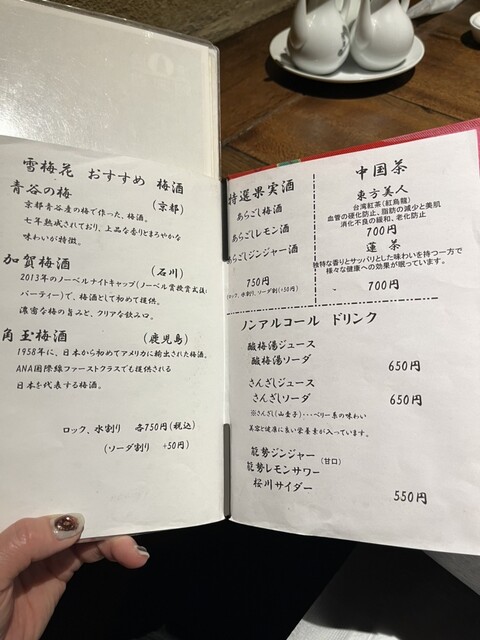 雪梅花 おすすめ 梅酒
青谷の梅 (京都)
京都青谷産の梅で作った、梅酒。
七年熟成されており、上品な香りとまろやかな
味わいが特徴。
加賀梅酒 (石川)
2013年のノーベルナイトキャップ(ノーベル賞授賞式後
パーティー)で、梅酒として初めて提供。
濃密な梅の旨みと、クリアな飲み口。
角玉梅酒 (鹿児島)
1958年に、日本から初めてアメリカに輸出された梅酒。
ANA国際線ファーストクラスでも提供される
日本を代表する梅酒。
ロック、水割り 各750円(税込)
(ソーダ割り +50円)
特選果実酒
あらごし梅酒
あらごしレモン酒
あらごしジンジャー酒
750円
(ロック、水割り、ソーダ割(+50円)
中国茶
東方美人
台湾紅茶(紅烏龍)
血管の硬化防止、脂肪の減少と美肌
消化不良の緩和、老化防止
700円
蓮茶
独特な香りとサッパリとした味わいを持つ一方で
様々な健康への効果が眠っています。
700円
ノンアルコール ドリンク
酸梅湯ジュース
酸梅湯ソーダ 650円
さんざしジュース
さんざしソーダ 650円
※さんざし(山査子)・・・ベリー系の味わい
美容と健康に良い栄養素が入っています。
能勢ジンジャー(甘口)
能勢レモンサワー
桜川サイダー
550円